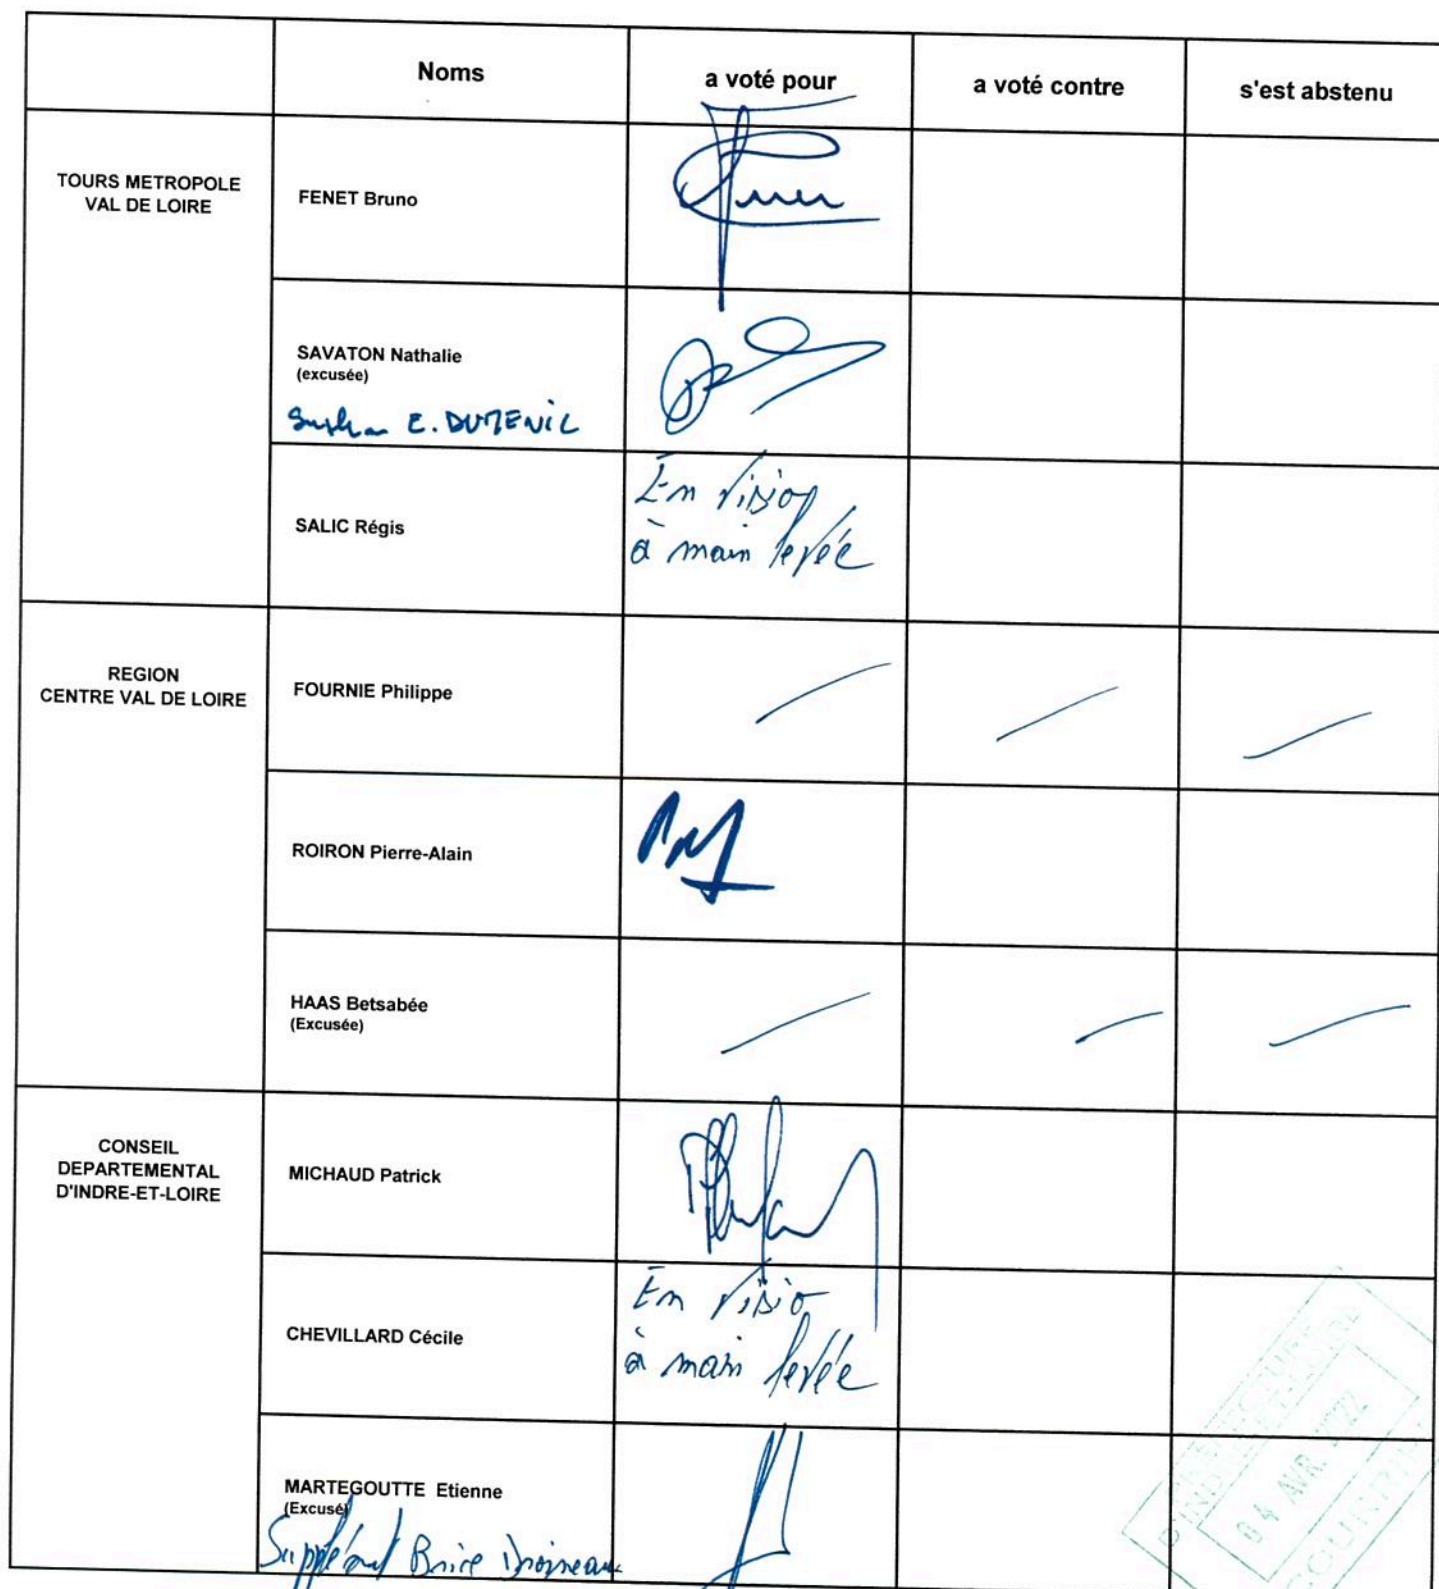 Noms
a voté pour
a voté contre
s'est abstenu
TOURS METROPOLE
VAL DE LOIRE
FENET Bruno
SAVATON Nathalie
(excusée)
E. DUMENIL
SALIC Régis
En visio
à main levée
REGION
CENTRE VAL DE LOIRE
FOURNIE Philippe
ROIRON Pierre-Alain
HAAS Betsabée
(Excusée)
CONSEIL
DEPARTEMENTAL
D'INDRE-ET-LOIRE
MICHAUD Patrick
CHEVILLARD Cécile
En visio
à main levée
MARTEGOUTTE Etienne
(Excusé)
Suppléant Brice Droineau
04 AVR. 2022
COURRIER